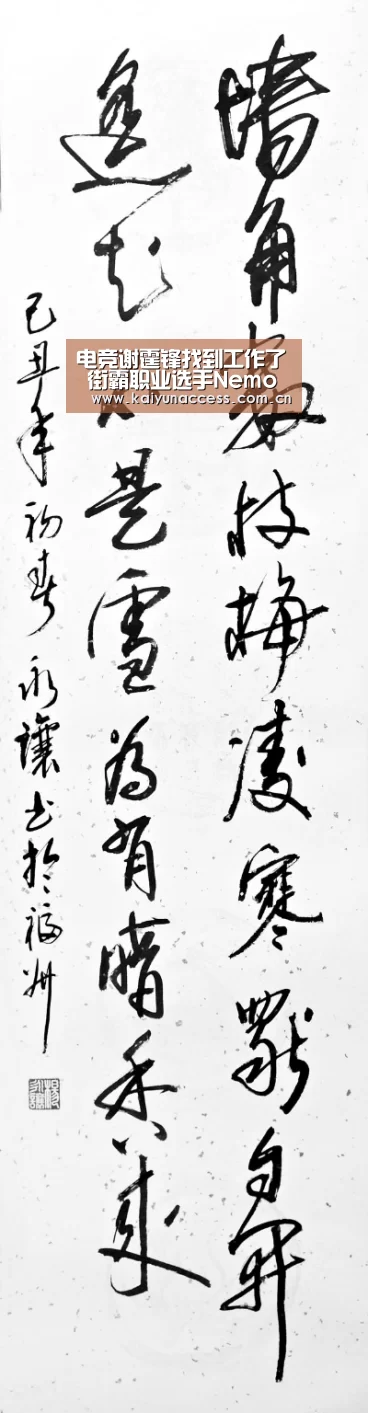 墙角数枝梅凌寒独自开
遥知不是雪为有暗香来
己丑年初春永让书于福州
电竞谢霆锋找到工作了
街霸职业选手Nemo
www.kaiyunaccess.com.cn